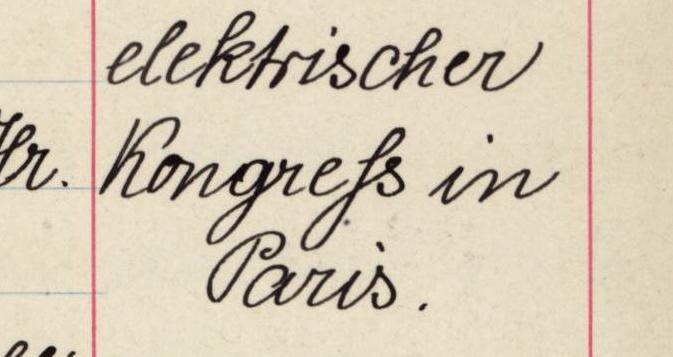 elektrischer
Hr. Kongreſs in
Paris.